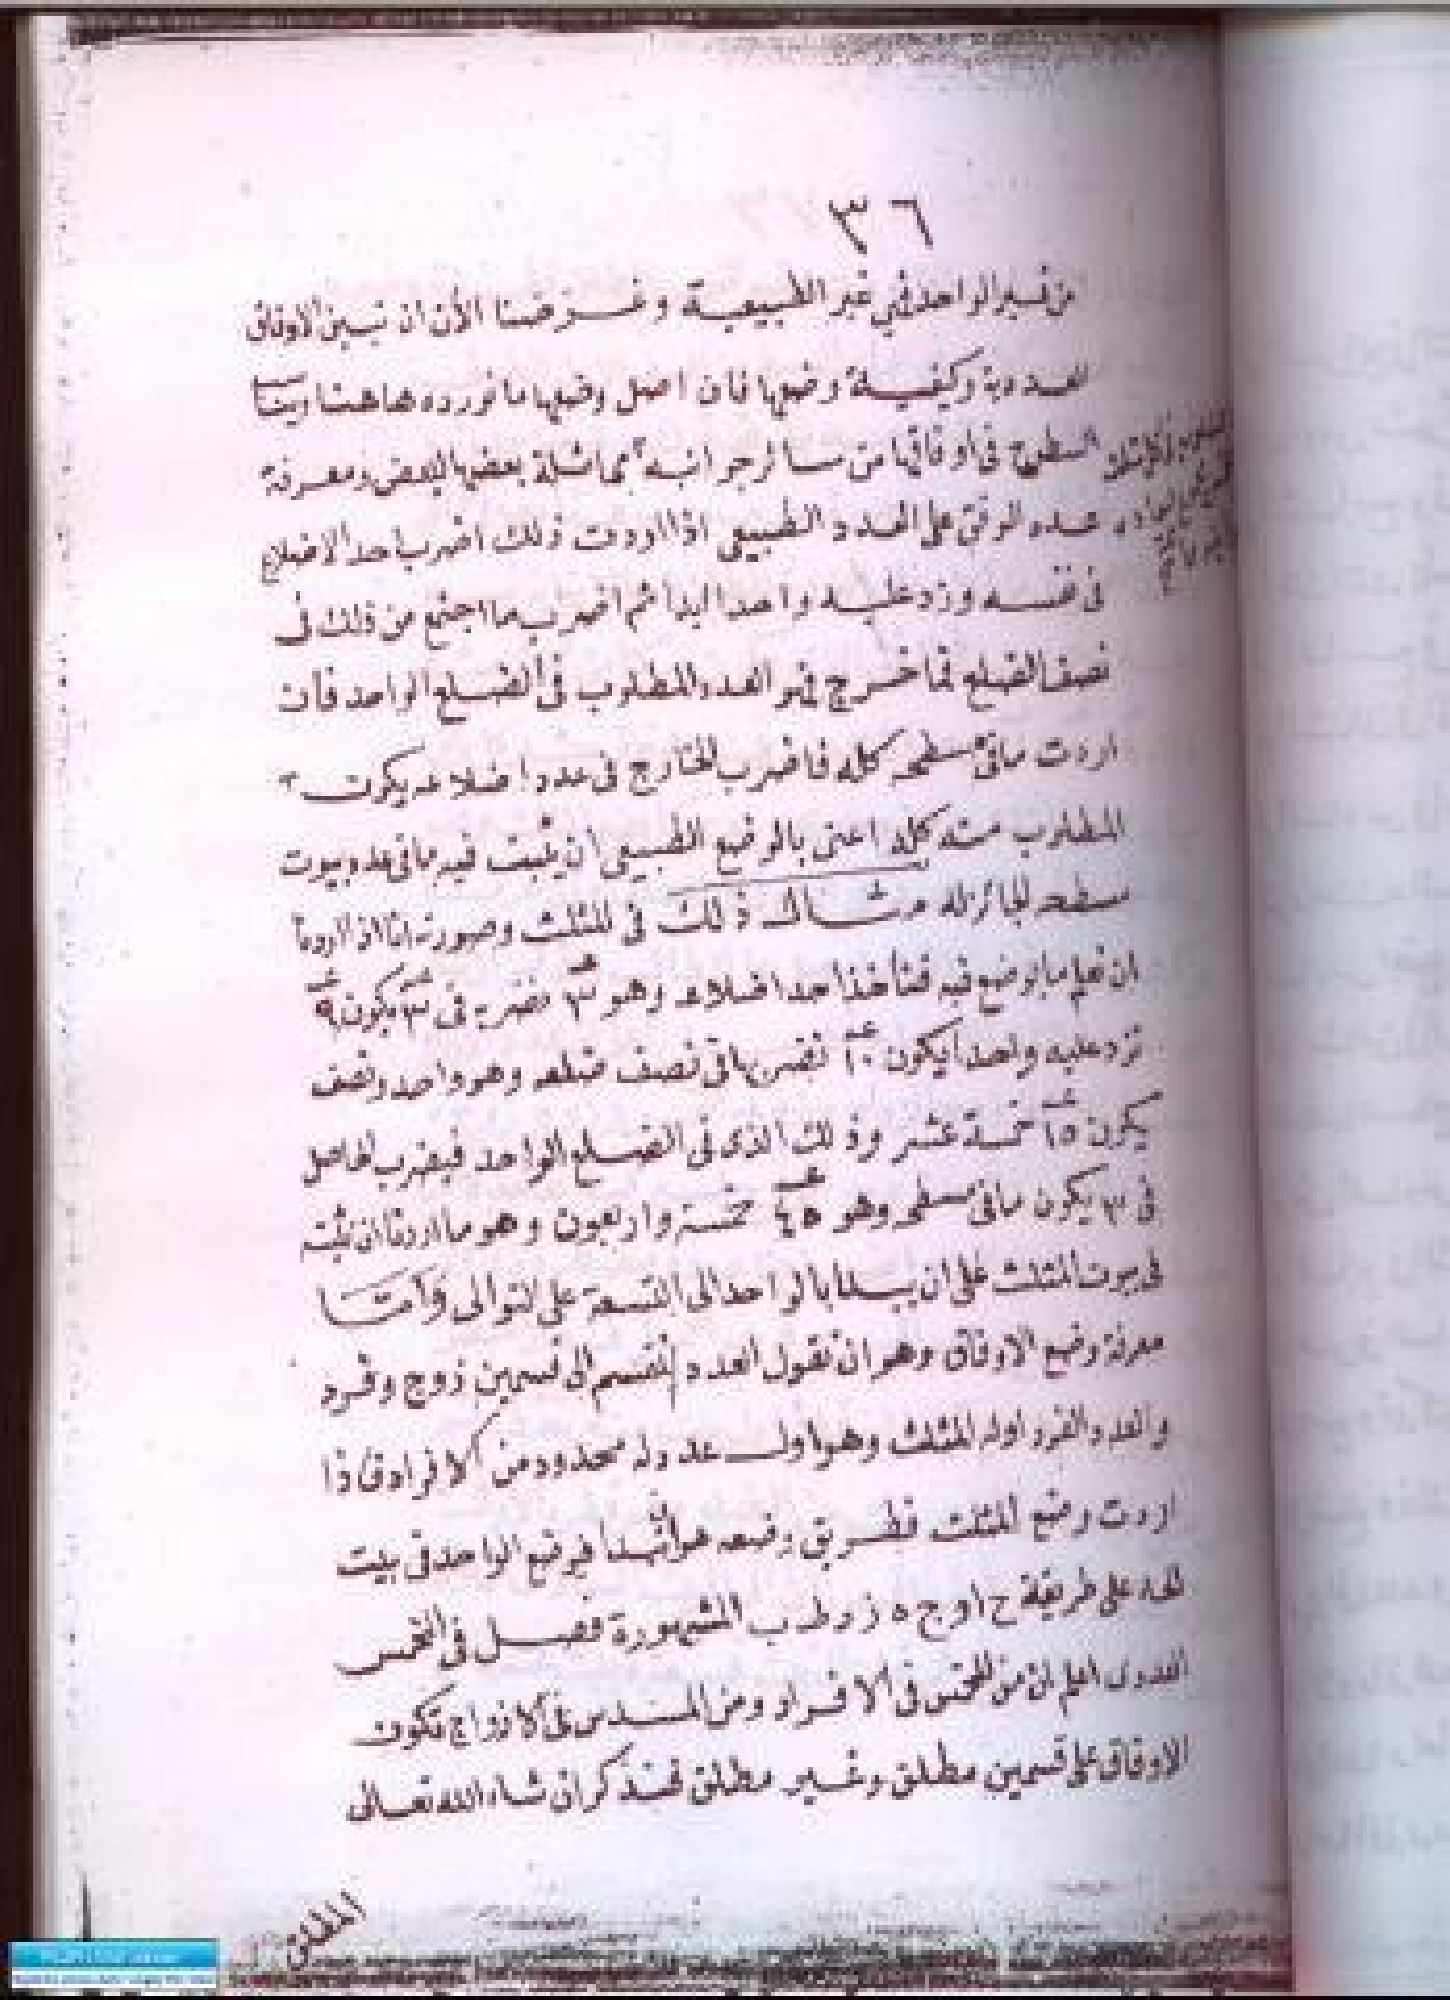 ٣٦
من غير الواحد فهي غير الطبيعية وغرضنا الأن ان نبين الاوفاق
العددية وكيفية وضعها فان اصل وضعها ما نورده هاهنا
السطوح فى اوفاقها من سائر جوانبه مماثلة بعضها البعض ومعرفة
عدد الوفق على العدد الطبيعى اذا اردت ذلك اضرب احد الاضلاع
فى نفسه وزد عليه واحدا ابدا ثم اضرب ما اجتمع من ذلك فى
نصف الضلع فما خرج فهو العدد المطلوب فى الضلع الواحد فان
اردت ما فى سطحه كله فاضرب الخارج فى عدد اضلاعه يكون
المطلوب منه كله اعنى بالوضع الطبيعى ان يثبت فيه ما فى عدد بيوت
سطحه الجائز له مثال ذلك فى المثلث وصورته انا اذا اردنا
ان نعلم ما يوضع فيه فنأخذ احد اضلاعه وهو ٣ نضربه فى ٣ يكون ٩
نزد عليه واحدا يكون ١٠ نضربها فى نصف ضلعه وهو واحد ونصف
يكون ١٥ خمسة عشر وذلك الذى فى الضلع الواحد فيضرب الحاصل
فى ٣ يكون ما فى سطحه وهو ٤٥ خمسة واربعون وهو ما اردنا ان نثبته
فى بيوت المثلث على ان يبدأ بالواحد الى التسعة على التوالى وأما
معرفة وضع الاوفاق وهو ان نقول العدد ينقسم الى قسمين زوج وفرد
والعدد الفرد اوله المثلث وهو اول عدد له محدود من الافراد فاذا
اردت وضع المثلث فطريق وضعه هو ان تبدأ فيوضع الواحد فى بيت
على طريقة ح ا و ج ه ز د ط ب المشهورة فصل فى المخمس
العددى اعلم ان من المخمس فى الافراد ومن المسدس فى الازواج تكون
الاوفاق على قسمين مطلق وغير مطلق فنذكر ان شاء الله تعالى
المطلق